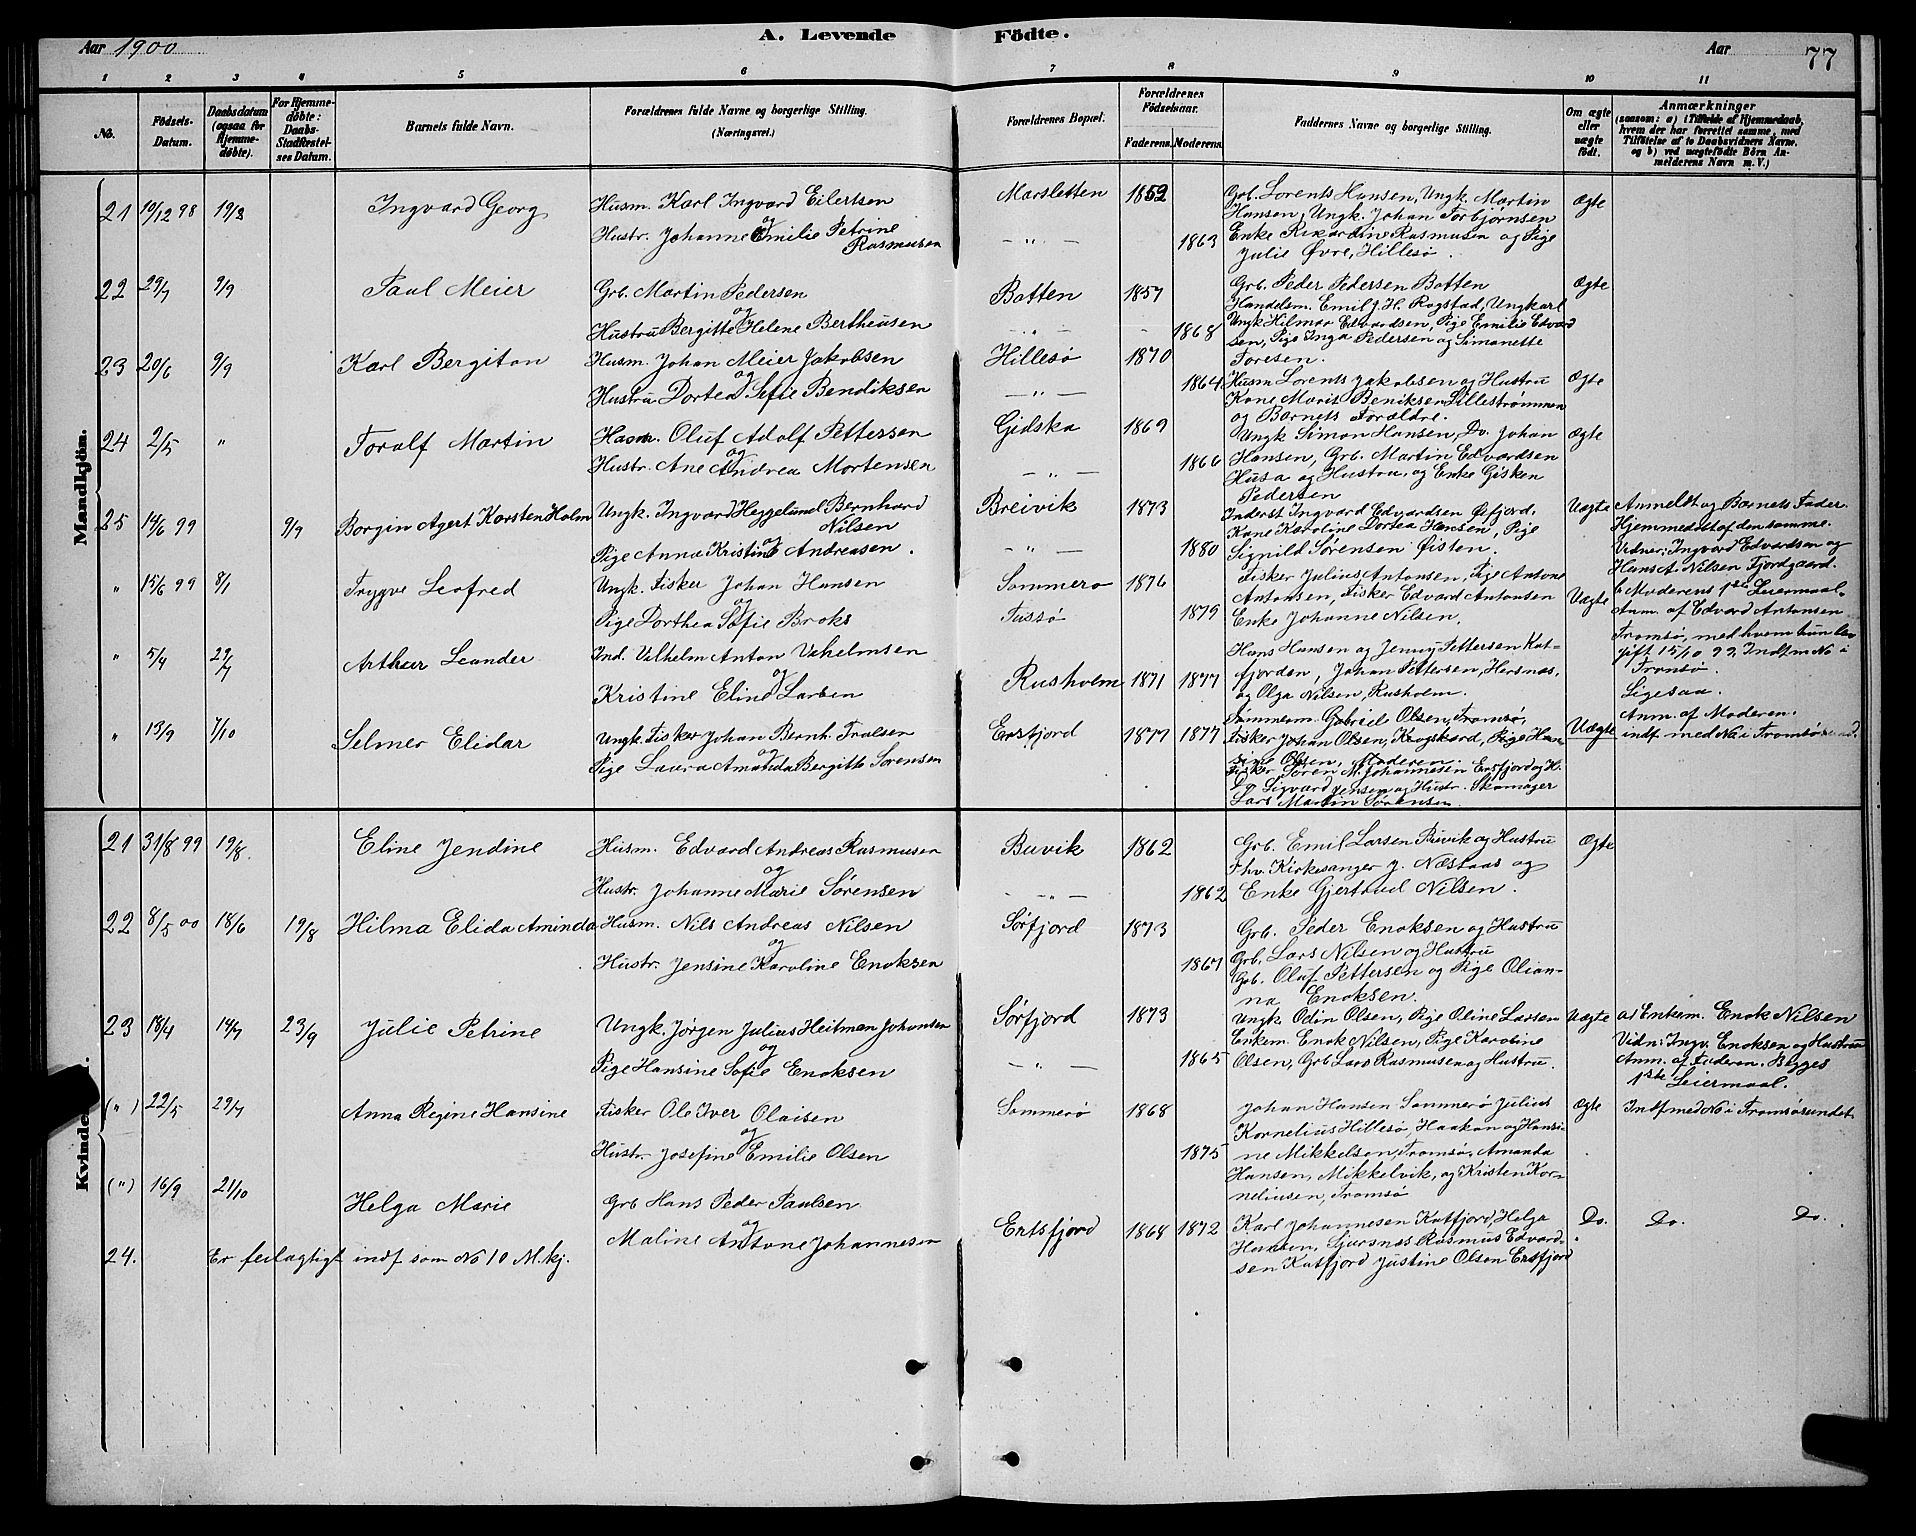 Aar 1900
A. Levende Födte.
Aar
77
1 2 3 4 5 6 7 8 9 10 11
No.
Födsels-Datum.
Daabsdatum (ogsaa for Hjemme-döbte).
For Hjemme-döbte: Daabs-Stadfæstel-ses Datum.
Barnets fulde Navn.
Forældrenes fulde Navne og borgerlige Stilling. (Næringsvei.)
Forældrenes Bopæl.
Forældrenes Födselsaar.
Faderens. Moderens.
Faddernes Navne og borgerlige Stilling.
Om ægte eller uægte födt.
Anmærkninger
(saasom: a) i Tilfælde af Hjemmedaab,
hvem der har forrettet samme, med
Tilföielse af to Daabsvidners Navne.
og b) ved uægtefödte Börn An-
melderens Navn m. V.)
Mandkjön.
21 19/12 98 19/3 Ingvard Georg
Husm. Karl Ingvard Eilertsen
og
Hustr. Johanne Emilie Petrine
Rasmusen
Marsletten 1852
— „ — 1863
Grb. Lorents Hansen, Ungk. Martin
Hansen, Ungk. Johan Torbjørnsen
Enke Rikardine Rasmusen og Pige
Julie Øvre, Hillesø.
Ægte
22 29/7 9/9 Paul Meier
Grb. Martin Pedersen
og
Hustru Bergitte Helene Bertheusen
Botten 1857
— „ — 1868
Grb. Peder Pedersen Botten
Handelsm. Emil J. H. Rogstad, Ungkarl
Ungk Hilmar Edvardsen, Pige Emilie Edvard
sen, Pige Inga Pedersen og Simonette
Toresen.
Ægte
23 20/6 9/9 Karl Bergiton
Husm. Johan Meier Jakobsen
og
Hustru Dortea Sofie Bendiksen
Hillesø 1870
— „ — 1864
Husm Lorents Jakobsen og Hustru
Kone Marit Beniksen Lillestrømmen
og Barnets Forældre.
Ægte
24 2/5 „ Toralf Martin
Husm. Oluf Adolf Pettersen
og
Hustr. Ane Andrea Mortensen
Gidska 1869
— „ — 1866
Ungk Simon Hansen, Do. Johan
Hansen, Grb. Martin Edvardsen
Husa og Hustru, og Enke Gisken
Pedersen
Ægte
25 14/6 99 9/9 Borgin Agert Karsten Holm
Ungk. Ingvard Heggelund Bernhard
Nilsen
og
Pige Anna Kristine Andreasen.
Breivik 1873
— „ — 1880
Inderst Ingvard Edvardsen Øfjord.
Kone Karoline Dortea Hansen, Pige
Signild Sørensen Øisten.
Uægte
Anmeldt og Barnets Fader.
Hjemmedøbt af den samme.
Vidner: Ingvard Edvardsen og
Hans A. Nilsen Fjordgaard.
„ 15/6 99 8/1 Trygve Leofred
Ungk. Fisker Johan Hansen
og
Pige Dorthea Sofie Broks
Sommerø 1876
Tussø 1879
Fisker Julius Antonsen, Pige Antone
Antonsen, Fisker Edvard Antonsen
Enke Johanne Nilsen.
Uægte
b Moderens 1ste Leiermaal.
Anm. af Edvard Antonsen
Tromsø, med hvem hun blev
gift 15/10 99. Indf m No i
Tromsø.
„ 5/4 29/7 Arthur Leander
Ind. Vilhelm Anton Vilhelmsen
og
Kristine Eline Larsen
Rusholm 1871 1877
Hans Hansen og Jenny Pettersen Kat-
fjorden, Johan Pettersen, Hersnæs,
og Olga Nilsen, Rusholm.
Ligesaa.
„ 13/9 7/10 Selmer Elidar
Ungk. Fisker Johan Bernh. Traasen
og
Pige Laura Amanda Bergitte Sørensen
Ersfjord 1877 1877
Tømmerm. Gabriel Olsen, Tromsø,
Fisker Johan Olsen, Krogskard, Pige Han
sine Olsen, Moderen.
Fisker Søren M. Johannesen Ersfjord og H.
Sigvard Jensen og Hustr. Skamager
Lars Martin Sørensen.
Uægte
Anm. af Moderen.
indf. med No i Tromsøsund.
Kvinde
21 31/8 99 19/8. Eline Jendine
Husm. Edvard Andreas Rasmusen
og
Hustr. Johanne Marie Sørensen
Buvik 1862
— „ — 1862
Grb. Emil Larsen Buvik og Hustru
Fhv. Kirkesanger J. Næstaas og
Enke Gjertrud Nilsen.
Ægte
22 8/5 00 18/6 19/8 Hilma Elida Aminda
Husm. Nils Andreas Nilsen
og
Hustr. Jensine Karoline Enoksen
Sørfjord 1873
1867
Grb. Peder Enoksen og Hustru
Grb. Lars Nilsen og Hustru
Grb. Oluf Pettersen og Pige Olian-
na Enoksen.
23 18/4 14/7 23/9 Julie Petrine
Ungk. Jørgen Julius Heitman Johansen
og
Pige Hansine Sofie Enoksen
Sørfjord 1873
— „ — 1865
Ungk. Odin Olsen, Pige Oline Larsen
Enkem. Enok Nilsen, Pige Karoline
Olsen, Grb Lars Rasmusen og Hustru.
Uægte
a) Enkem. Enok Nilsen
Vidn: Ingv. Enoksen og Hustru
Anm. af Faderen. Begges
1ste Leiermaal.
(„) 22/5 29/7 Anna Regine Hansine
Fisker Ole Iver Olaisen
og
Hustr. Josefine Emilie Olsen
Sommerø 1868
1875
Johan Hansen Sommerø Julius
Kornelius Hillesø, Haakon og Hansi-
ne Mikkelsen, Tromsø, Amanda
Hansen, Mikkelvik, og Kristen Kor-
neliusen, Tromsø
Ægte
Indf med No i Tromsøsundet
(„) 16/9 21/10 Helga Marie
Grb Hans Peder Paulsen
og
Maline Antone Johannesen
Ertsfjord 1868 1872
Karl Johannesen Katfjord, Helga
Hansen, Sjursnæs Rasmus Edvard-
sen Katfjord Justine Olsen Ersfjord
Do. Do. Do.
24. Er feilagtigt indf som No 10 M.kj.